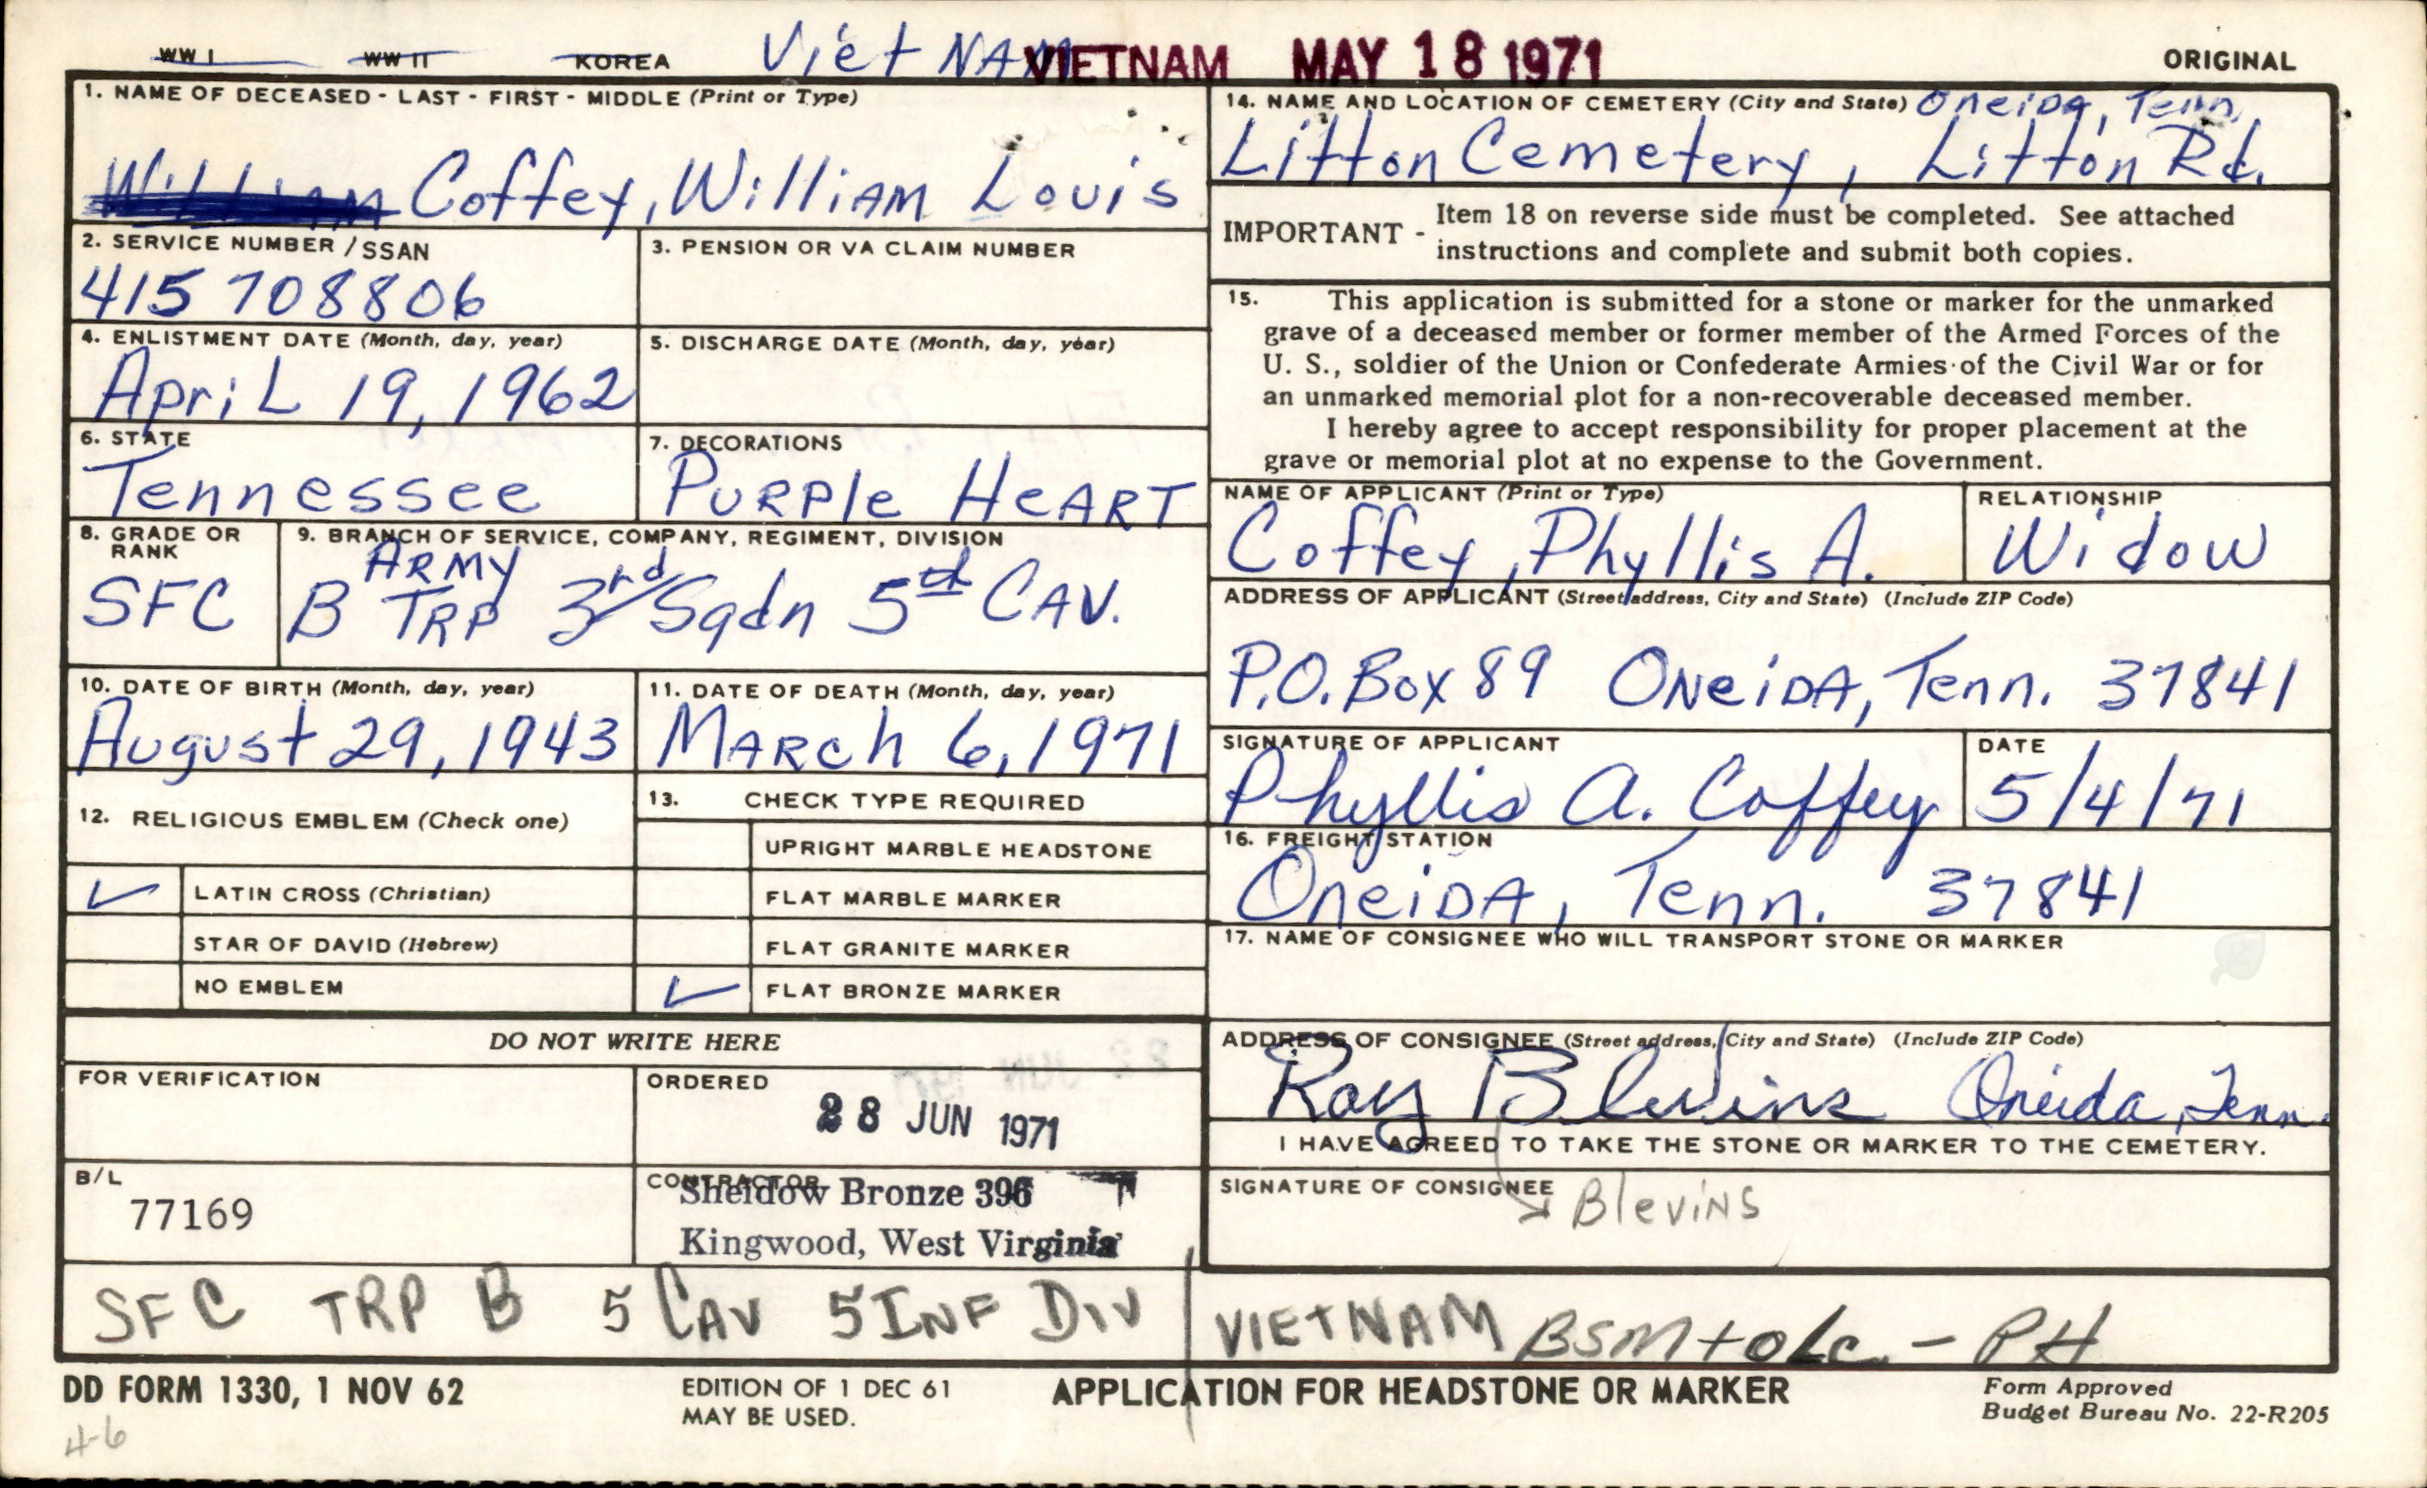 WW I WW II KOREA Viet NAM VIETNAM MAY 18 1971 ORIGINAL
1. NAME OF DECEASED - LAST - FIRST - MIDDLE (Print or Type)
William Coffey, William Louis
2. SERVICE NUMBER / SSAN
415 708806
3. PENSION OR VA CLAIM NUMBER
4. ENLISTMENT DATE (Month, day, year)
April 19, 1962
5. DISCHARGE DATE (Month, day, year)
6. STATE
Tennessee
7. DECORATIONS
PURPle HeART
8. GRADE OR RANK
SFC
9. BRANCH OF SERVICE, COMPANY, REGIMENT, DIVISION
ARMY
B TRP 3rd Sqdn 5th CAV.
10. DATE OF BIRTH (Month, day, year)
August 29, 1943
11. DATE OF DEATH (Month, day, year)
MARch 6, 1971
12. RELIGIOUS EMBLEM (Check one)
✓ LATIN CROSS (Christian)
STAR OF DAVID (Hebrew)
NO EMBLEM
13. CHECK TYPE REQUIRED
UPRIGHT MARBLE HEADSTONE
FLAT MARBLE MARKER
FLAT GRANITE MARKER
✓ FLAT BRONZE MARKER
DO NOT WRITE HERE
FOR VERIFICATION
ORDERED
28 JUN 1971
B/L
77169
CONTRACTOR
Sheidow Bronze 396
Kingwood, West Virginia
14. NAME AND LOCATION OF CEMETERY (City and State) Oneida, Tenn.
Litton Cemetery, Litton Rd.
IMPORTANT - Item 18 on reverse side must be completed. See attached
instructions and complete and submit both copies.
15. This application is submitted for a stone or marker for the unmarked
grave of a deceased member or former member of the Armed Forces of the
U. S., soldier of the Union or Confederate Armies of the Civil War or for
an unmarked memorial plot for a non-recoverable deceased member.
I hereby agree to accept responsibility for proper placement at the
grave or memorial plot at no expense to the Government.
NAME OF APPLICANT (Print or Type)
Coffey, Phyllis A.
RELATIONSHIP
Widow
ADDRESS OF APPLICANT (Street address, City and State) (Include ZIP Code)
P.O. Box 89 ONeiDA, Tenn. 37841
SIGNATURE OF APPLICANT
Phyllis A. Coffey
DATE
5/4/71
16. FREIGHT STATION
OneiDA, Tenn. 37841
17. NAME OF CONSIGNEE WHO WILL TRANSPORT STONE OR MARKER
ADDRESS OF CONSIGNEE (Street address, City and State) (Include ZIP Code)
Roy Blevins Oneida, Tenn.
I HAVE AGREED TO TAKE THE STONE OR MARKER TO THE CEMETERY.
SIGNATURE OF CONSIGNEE
Blevins
SFC TRP B 5 CAV 5 INF DIV VIETNAM BSM + OLC - PH
DD FORM 1330, 1 NOV 62 EDITION OF 1 DEC 61
MAY BE USED.
APPLICATION FOR HEADSTONE OR MARKER
Form Approved
Budget Bureau No. 22-R205
46